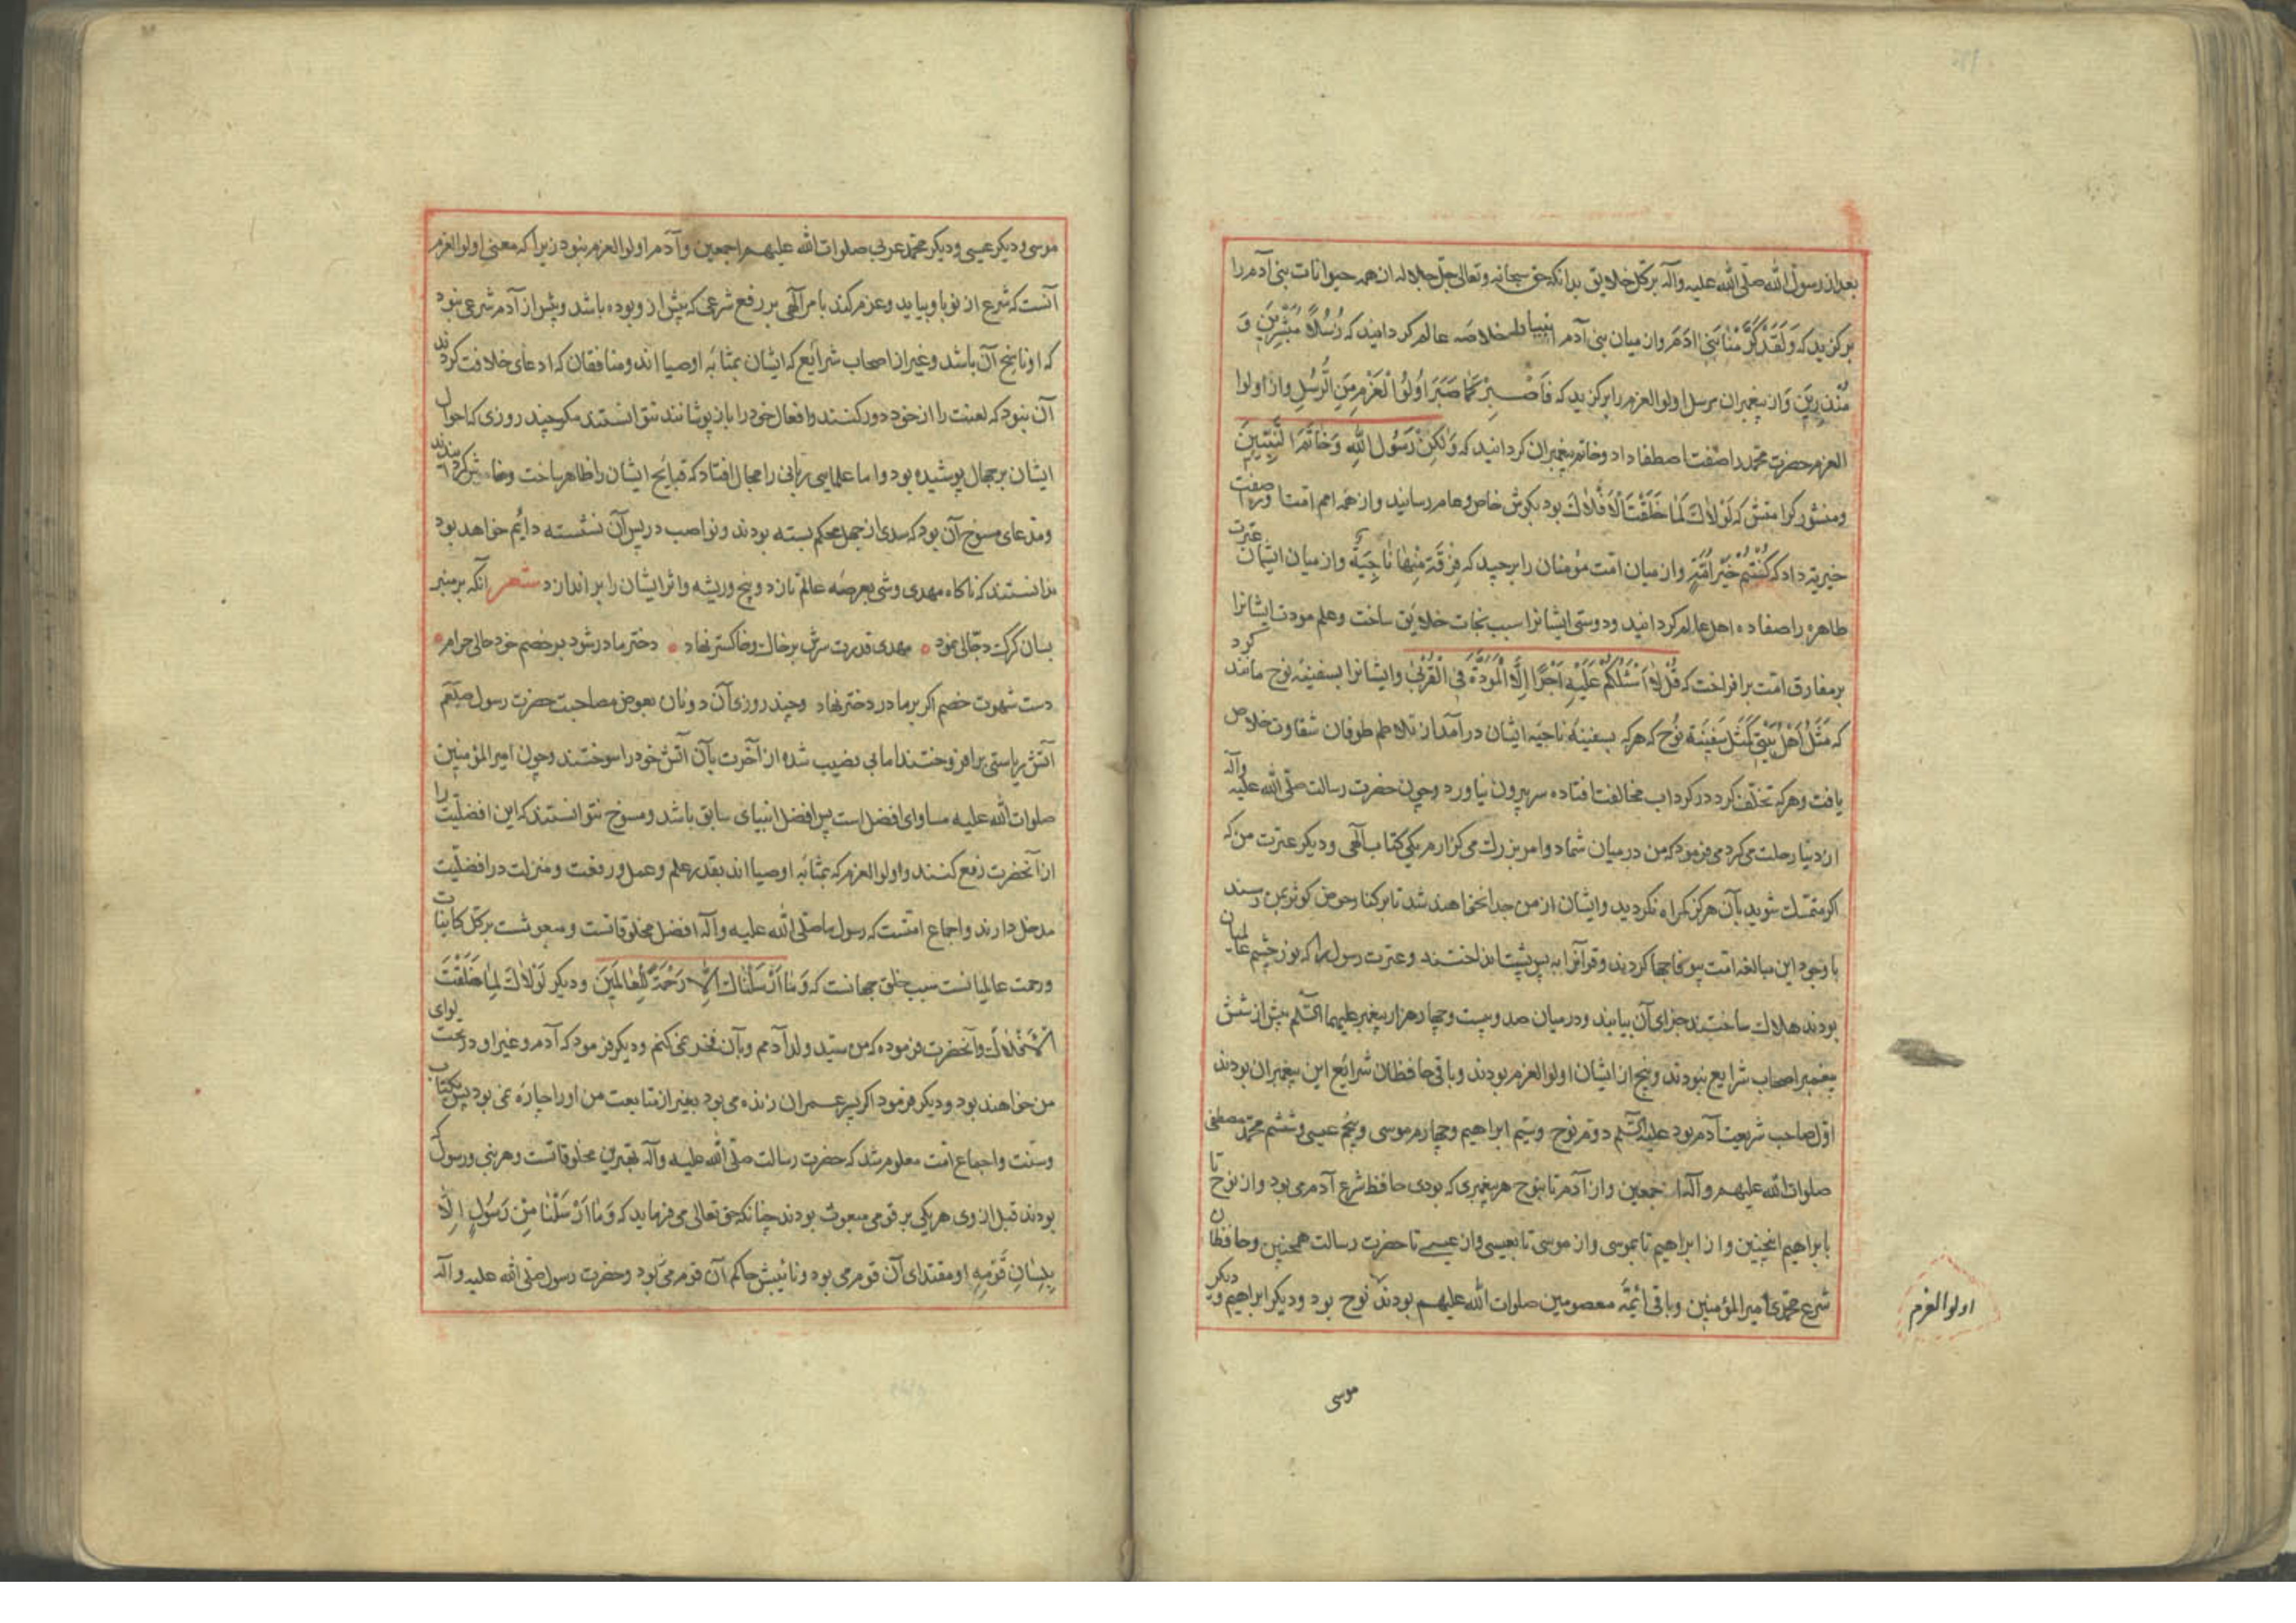 بعد از رسول الله صلی الله علیه وآله بر کل خلایق بدانکه حق سبحانه وتعالی جل جلاله از همه حیوانات بنی آدم را
برکزید که وَلَقَدْ کَرَّمْنَا بَنِی اٰدَمَ واز میان بنی آدم انبیا را خلاصه عالم کردانید که رُسُلاً مُبَشِّرِینَ وَ
مُنْذِرِینَ وَاز پیغمبران مرسل اولوا العزم را برکزید که فَاصْبِرْ کَمَا صَبَرَ اُولُوا الْعَزْمِ مِنَ الرُّسُلِ واز اولوا
العزم حضرت محمد را صفت اصطفا داد وخاتم پیغمبران کردانید که وَلٰکِنْ رَسُولَ اللهِ وَخَاتَمَ النَّبِیِّینَ
ومنشور کرامتش که لَوْلاٰکَ لَمَا خَلَقْتُ الْاَفْلاٰکَ بود بکوش خاص وعام رسانید واز همه امم امت او را صفت
خیریة داد که کُنْتُمْ خَیْرَ اُمَّةٍ واز میان امت مؤمنان را برچید که فِرْقَةٌ مِنْهٰا نٰاجِیَةٌ واز میان ایشان عترت
طاهره را صفا داده اهل عالم کردانید ودوستی ایشانرا سبب نجات خلایق ساخت وعلم مودت ایشانرا
بر مفارق امت برافراخت که قُلْ لاٰ اَسْئَلُکُمْ عَلَیْهِ اَجْرًا اِلَّا الْمَوَدَّةَ فِی الْقُرْبیٰ وایشانرا بسفینه نوح مانند کرد
که مَثَلُ اَهْلِ بَیْتِی کَمَثَلِ سَفِینَةِ نُوحٍ که هرکه بسفینه ناجیه ایشان درآمد از تلاطم طوفان شقاوت خلاص
یافت وهرکه تخلف کرد در کرداب مخالفت افتاده سر بیرون نیاورد وچون حضرت رسالت صلی الله علیه وآله
از دنیا رحلت می کرد می فرمود که من در میان شما دو امر بزرک می کزارم یکی کتاب الٓهی ودیکر عترت من که
اکر متمسک شوید بآن هرکز کمراه نکردید وایشان از من جدا نخواهند شد تا بر کنار حوض کوثر بمن رسند
با وجود این مبالغه امت بیوفا جفا کردند وقرآنرا به پس پشت انداختند وعترت رسول را که نور چشم عالمیان
بودند هلاک ساختند جزای آن بیابند ودر میان صد وبیست وچهار هزار پیغمبر علیهم السلام بیش از شش
پیغمبر اصحاب شرایع نبودند وپنج از ایشان اولوا العزم بودند وباقی حافظان شرایع این پیغمبران بودند
اول صاحب شریعت آدم بود علیه السلام دوم نوح وسیم ابراهیم وچهارم موسی وپنجم عیسی وششم محمد مصطفی
صلوات الله علیهم وآله اجمعین واز آدم تا بنوح هر پیغمبری که بودی حافظ شرع آدم می بود واز نوح تا
بابراهیم اینچنین واز ابراهیم تا بموسی واز موسی تا بعیسی واز عیسی تا حضرت رسالت همچنین وحافظان
شرع محمدی امیر المؤمنین وباقی ائمه معصومین صلوات الله علیهم بودند نوح بود ودیکر ابراهیم ودیکر
اولوا العزم
موسی
موسی ودیکر عیسی ودیکر محمد عربی صلوات الله علیهم اجمعین وآدم اولوا العزم نبود زیرا که معنی اولوا العزم
آنست که شرع از نو باو بیاید وعزم کند بامر الٓهی بر رفع شرعی که پیش از و بوده باشد وپیش از آدم شرعی نبود
که او ناسخ آن باشد وغیر از اصحاب شرایع که ایشان بمثابه اوصیا اند ومنافقان که ادعای خلافت کردند
آن نبود که لعنت را از خود دور کنند وافعال خود را باز پوشانند نتوانستند مکر چند روزی که احوال
ایشان بر جهال پوشیده بود واما علمای ربانی را مجال افتاد که قبایح ایشان را ظاهر ساخت
ومدعای مسوخ آن بود که سدی از جهل محکم بسته بودند ونواصب در پس آن نشسته دایم خواهد بود
ندانستند که ناکاه مهدی وشی بعرصه عالم تازد وبیخ وریشه واثر ایشان را براندازد شعر آنکه بر منبر
بسان کرک دجالی نمود مهدی قدرت سرش بر خاک وخاکستر نهاد دختر مادر شود بر خصم خود حالی حرام
دست شهوت خصم اکر بر مادر دختر نهاد وچند روزی آن دونان بعوض مصاحبت حضرت رسول صلعم
آتش ریاستی برافروختند اما بی نصیب شده از آخرت بآن آتش خود را سوختند وچون امیر المؤمنین
صلوات الله علیه مساوای افضل است پس افضل انبیای سابق باشد ومسوخ نتوانستند که این افضلیت را
از آنحضرت رفع کنند واولوا العزم که بمثابه اوصیا اند بقدر علم وعمل ورفعت ومنزلت در افضلیت
مدخل دارند واجماع امتست که رسول ما صلی الله علیه وآله افضل مخلوقاتست ومبعوثست بر کل کاینات
ورحمت عالمیانست سبب خلق جهانست که وَمٰا اَرْسَلْنٰاکَ اِلاّٰ رَحْمَةً لِلْعٰالَمِینَ ودیکر لَوْلاٰکَ لَمٰا خَلَقْتُ
الْاَفْلاٰکَ وآنحضرت فرموده که من سید ولد آدمم وبآن فخر نمی کنم ودیکر فرمود که آدم وغیر او در تحت لوای
من خواهند بود ودیکر فرمود اکر پسر عمران زنده می بود بغیر از متابعت من او را چاره نمی بود پس بکتاب
وسنت واجماع امت معلوم شد که حضرت رسالت صلی الله علیه وآله بهترین مخلوقاتست وهر نبی ورسول که
بودند قبل از وی هر یکی بر قومی مبعوث بودند چنانکه حق تعالی می فرماید که وَمٰا اَرْسَلْنٰا مِنْ رَسُولٍ اِلاّٰ
بِلِسٰانِ قَوْمِهِ او مقتدای آن قوم می بود ونائبش حاکم آن قوم می بود وحضرت رسول صلی الله علیه وآله